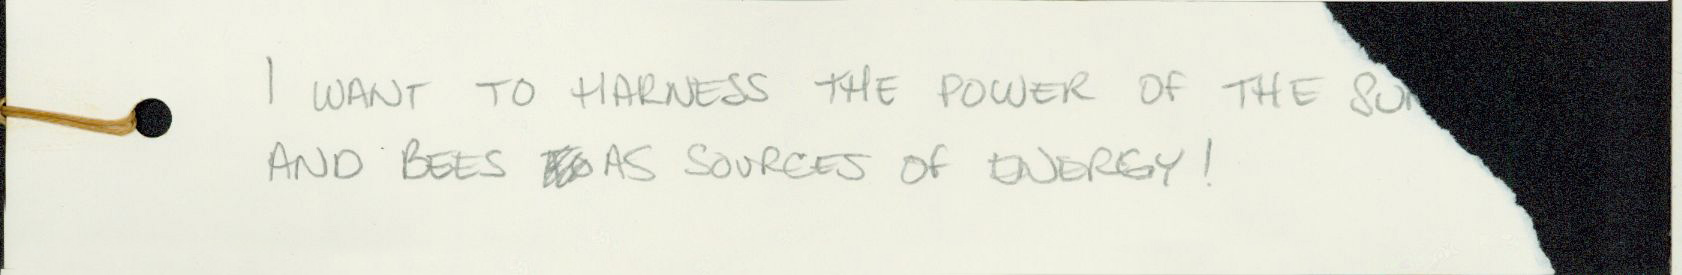 I WANT TO HARNESS THE POWER OF THE SUN
AND BEES AS SOURCES OF ENERGY!